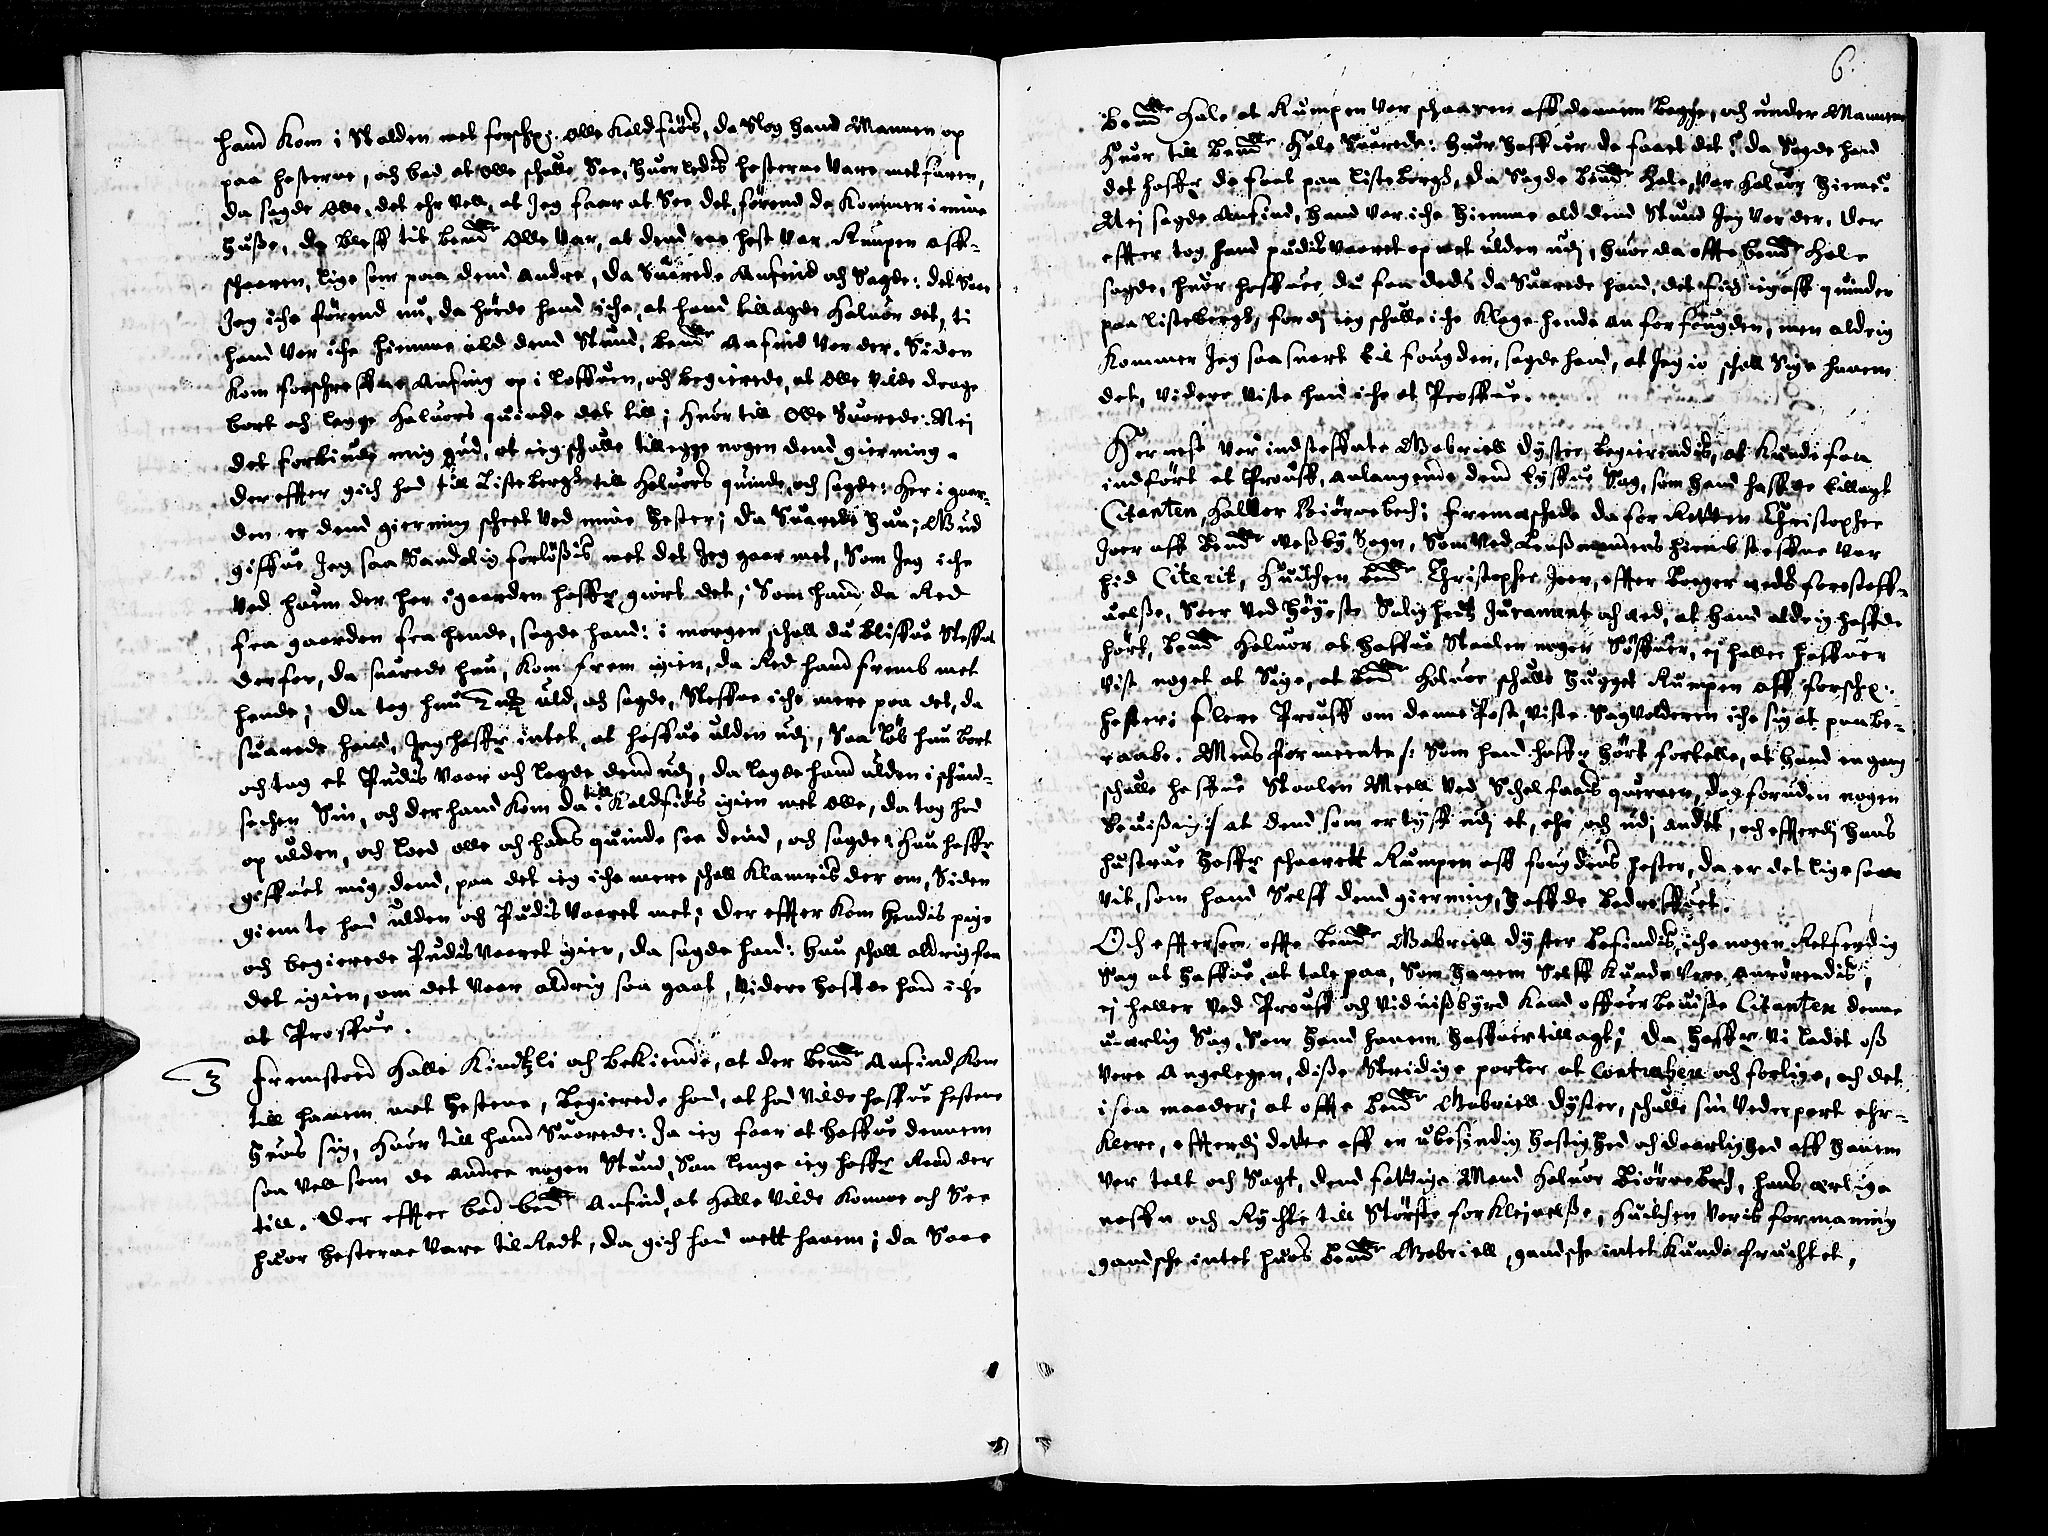 hand Kom i Stalden met forsch: Olle Kaldsiös, da Slog hand Mannen op
paa hesterne, och bad at Olle schulle See, huorledis hesterne vare met faren,
da sagde Olle, det ehr vell, at Jeg faar at See det, förend de Kommer i mine
Huße, da bleff till bemte Olle var, at dend ene hest var Rumpen aff-
schaaren, lige som paa dend andre, da Suarede Anfind och Sagde: det Saae
Jeg iche förend nu, da hörde hand iche, at hand tillagde Haluor det, ti
hand var iche hiemme all dend Stund, bemte Anfind var der. Siden
Kom forschreffne Anfind op i loffuen, och begierede, at Olle vilde drage
bort och legge Haluors quinde det till; huor till Olle Suarede: Nej
det forbiude mig gud, at ieg schulle tillegge nogen dend gierning.
der effter gich hand till Listebergh till Haluors quinde, och sagde: her i gaar-
den er dend gierning scheet ved mine hester; da Suarede hun; Gud
giffue Jeg saa Sandelig forlößis met det Jeg gaar met, Som Jeg iche
ved huem der her i gaarden haffr giort det, Som hand da Red
fra gaarden fra hende, sagde hand: i morgen schall du bliffue Steffnt
derfor, da suarede hun, Kom frem igien, da Red hand fremb met
hende; da tog hun uld, och sagde, Steffne iche mere paa det, da
suarede hand, Jeg haffr intet, at haffue ulden udi, Saa löb hun bort
och tog et Pudis Vaar och lagde dend udi, da lagde hand ulden i schind-
sechen Sin, och der hand Kom da till Kaldsiös igien met Olle, da tog hand
op ulden, och loed Olle och hans quinde see dend, och sagde: Hun haffr
giffuet mig dend, paa det ieg iche mere schall Klamris der om, Siden
giemte hand ulden och Pudis Vaaret met; der effter Kom hendis pige
och begierede Pudis Vaaret igien, da sagde hand: hun schall aldrig faa
det igien, om det vaar aldrig saa gaat, videre haffde hand iche
at Proffue.
3 Fremstoed Halle Kindtzli och bekiende, at der bemte Anfind Kom
till hannem met hesterne, begierede hand, at hand vilde haffue hesterne
huos sig, huor till hand Suarede: Ja ieg faar at haffue dennem
saa vell som de andre nogen Stund, Saa lenge ieg haffr Raad der
till. der effter bad bemte Anfind, at Halle vilde Komme och See
huor hesterne vare til Redt, da gich hand mett hannem; da Saae
6.
bemte Hale at Rumpen var schaaren aff dennem begge, och under Mannene
huor till bemte Hale Suarede: huor haffuer de faaet det? da Sagde hand
det haffr de faat paa Listebergh, da Sagde bemte Hale, var Haluor hieme?
Nej sagde Anfind, hand var iche hiemme ald dend Stund Jeg var der, der
effter tog hand pudisvaaret op met ulden udj, huor da offte bemte Hale
sagde, huor haffuer du faa det? da Suarede hand, det fich ieg aff quinden
paa Listebergh, fordj ieg schulle iche Klage hende an for fougden, men aldrig
Kommer Jeg saa snart til fougden, sagde hand, at Jeg io schall Sige hannem
det, videre viste hand iche at Proffue.
Hernest var indsteffnte Gabriell Dyster begierendis, at Kunde faa
indfört et Prouff, anlangende dend tyffue Sag, som hand haffue tillagt
Citanten, Halluor Biörnebech; Fremeschede da for Retten Christopher
Joer aff bemte Neßby Sogn, Som ved Lensmandens hiemb steffne var
hid Citerit, huilchen bemte Christopher Joer, effter boeger eeds forestaff-
uelße, Soer ved höyeste Salighedz Jurament och eed, at hand aldrig haffde
hört, bemte Haluor at haffue Staalen nogen Söffuer, ej heller haffuer
vist noget at Sige, at bemte Haluor schulle hugget Rumpen aff forsch:
hester; flere Prouff om denne Post, viste Sagvolderen iche sig at paabe-
raabe. Mens formeente /: Som hand haffr hört fortelle, at hand engang
schulle haffue Staalen Meell ved Schelfaaes querner, dog foruden nogen
beuißing :/ at dend som er tyff udj et, ehr och udj andet, och effterdj hans
hustrue haffr schaarett Rumpen aff fougdens hester, da er det lige saa
vit, som hand Selff dend gierning haffde bedreffuet.
Och effterson offte bemte Gabriell Dyster befindis, iche nogen Retferdig
Sag at haffue, at tale paa, Som hannem Selff Kunde vere anrörendis,
ej heller ved Prouff och vidnißbyrd Kand offuer beuiße Citanten denne
uærlig Sag, Som hand hannem haffuer tillagt; Da haffr vi ladet oß
vere angelegen, diße Stridige parter at Contrahere och forlige, och det
i saa maader; at offte bemte Gabriell Dyster, schulle sin vederpart ehr-
klere, effterdj dette aff en ubesindig hastighed och daarlighed aff hannem
var talt och Sagt, dend fattige Mand Haluor Biörnebech, hans ærlige
naffn och Rychte till Störste forklejnelße, huilchen voris formaning
gandsche intet huos bemte Gabriell, gandsche intet Kunde fruchtet,